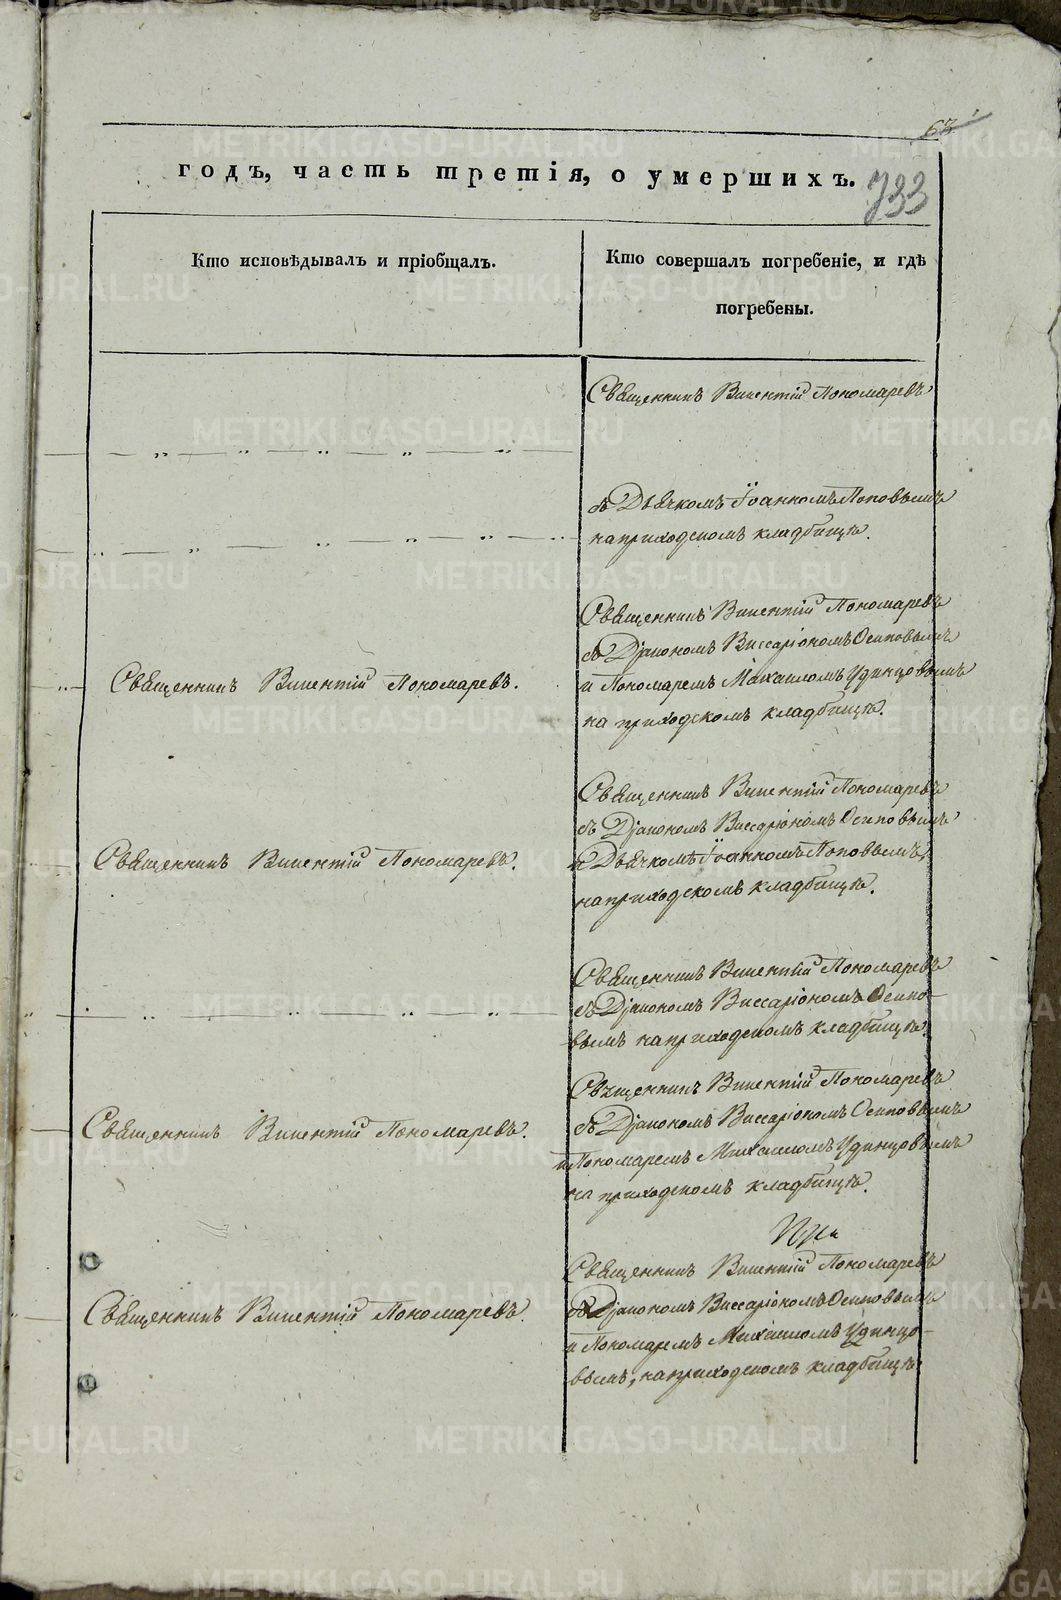 63
годъ, часть третія, о умершихъ.
733
Кто исповѣдывалъ и пріобщалъ.
Кто совершалъ погребеніе, и гдѣ
погребены.
Священникъ Викентій Пономаревъ
съ Дьячкомъ Іоанномъ Поповымъ
на приходскомъ кладбищѣ.
Священникъ Викентій Пономаревъ.
Священникъ Викентій Пономаревъ
съ Діакономъ Виссаріономъ Осиповымъ
и Пономаремъ Михаиломъ Удинцовымъ
на приходскомъ кладбищѣ.
Священникъ Викентій Пономаревъ.
Священникъ Викентій Пономаревъ
съ Діакономъ Виссаріономъ Осиповымъ
и Дьячкомъ Іоанномъ Поповымъ,
на приходскомъ кладбищѣ.
Священникъ Викентій Пономаревъ
съ Діакономъ Виссаріономъ Осипо-
вымъ на приходскомъ кладбищѣ.
Священникъ Викентій Пономаревъ.
Священникъ Викентій Пономаревъ
съ Діакономъ Виссаріономъ Осиповымъ
и Пономаремъ Михаиломъ Удинцовымъ
на приходскомъ кладбищѣ.
Священникъ Викентій Пономаревъ.
Священникъ Викентій Пономаревъ
съ Діакономъ Виссаріономъ Осиповымъ
и Пономаремъ Михаиломъ Удинцо-
вымъ, на приходскомъ кладбищѣ.
METRIKI.GASO-URAL.RU